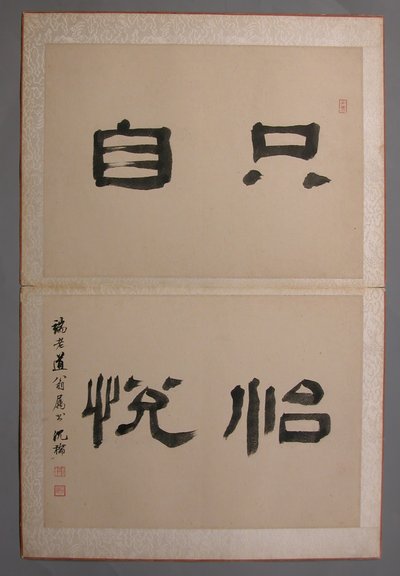 只自
怡悅
老道翁屬書 沈